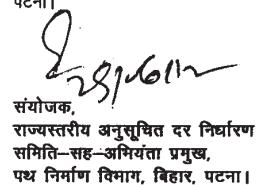 पटना।
संयोजक,
राज्यस्तरीय अनुसूचित दर निर्धारण
समिति–सह–अभियंता प्रमुख,
पथ निर्माण विभाग, बिहार, पटना।